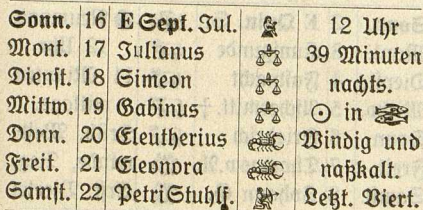 Sonn. 16 E Sept. Jul. 12 Uhr
Mont. 17 Julianus 39 Minuten
Dienst. 18 Simeon nachts.
Mittw. 19 Gabinus ☉ in ♓
Donn. 20 Eleutherius Windig und
Freit. 21 Eleonora naßkalt.
Samst. 22 Petri Stuhlf. Letzt. Viert.